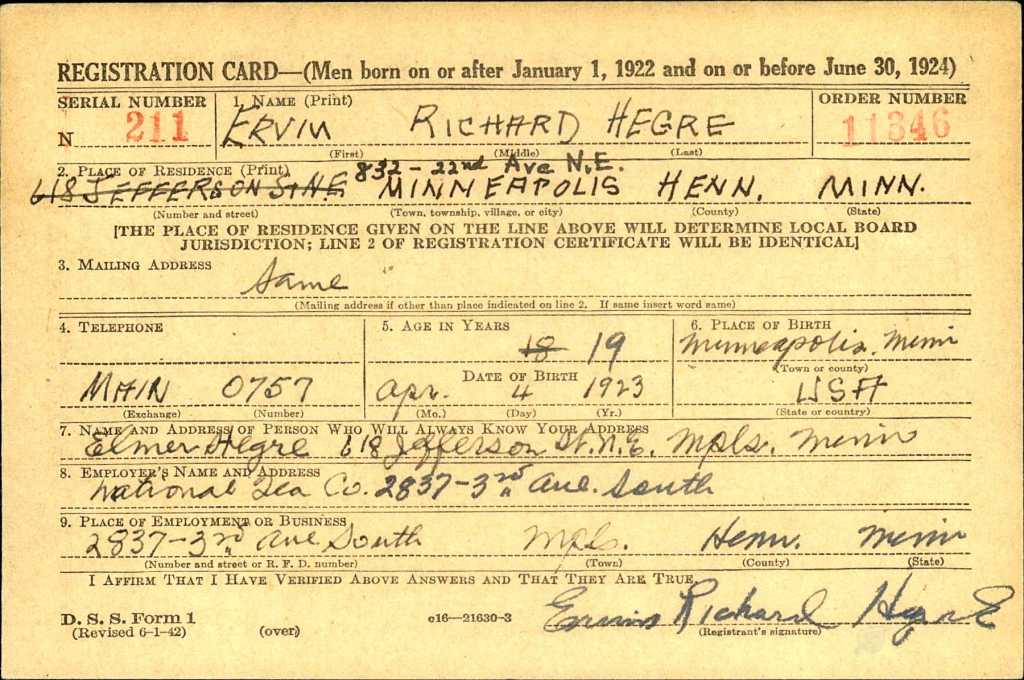 REGISTRATION CARD—(Men born on or after January 1, 1922 and on or before June 30, 1924)
SERIAL NUMBER 1. NAME (Print) ORDER NUMBER
N 211 ERVIN RICHARD HEGRE 11346
(First) (Middle) (Last)
832 - 22nd Ave N.E.
2. PLACE OF RESIDENCE (Print)
618 JEFFERSON ST N.E MINNEAPOLIS HENN. MINN.
(Number and street) (Town, township, village, or city) (County) (State)
[THE PLACE OF RESIDENCE GIVEN ON THE LINE ABOVE WILL DETERMINE LOCAL BOARD
JURISDICTION; LINE 2 OF REGISTRATION CERTIFICATE WILL BE IDENTICAL]
3. MAILING ADDRESS
Same
(Mailing address if other than place indicated on line 2. If same insert word same)
4. TELEPHONE 5. AGE IN YEARS 6. PLACE OF BIRTH
18 19 Minneapolis, Minn
(Town or county)
DATE OF BIRTH
MAIN 0757 Apr. 4 1923 USA
(Exchange) (Number) (Mo.) (Day) (Yr.) (State or country)
7. NAME AND ADDRESS OF PERSON WHO WILL ALWAYS KNOW YOUR ADDRESS
Elmer Hegre 618 Jefferson St. N.E. Mpls. Minn
8. EMPLOYER'S NAME AND ADDRESS
National Tea Co. 2837-3rd Ave. South
9. PLACE OF EMPLOYMENT OR BUSINESS
2837-3rd Ave South Mpls. Henn. Minn
(Number and street or R. F. D. number) (Town) (County) (State)
I AFFIRM THAT I HAVE VERIFIED ABOVE ANSWERS AND THAT THEY ARE TRUE.
D. S. S. Form 1 Ervin Richard Hegre
(Revised 6-1-42) (over) c16—21630-3 (Registrant's signature)